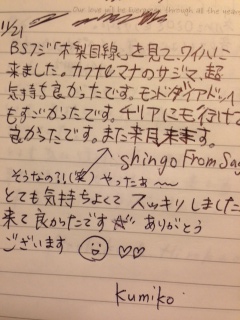 11/21
BSフジ「木梨目線」を見て、ワイハに
来ました。カフナとマナのサジマ、超
気持ち良かったです。モンドダイアドッグ
もすごかったです。チリアにも行けて
良かったです。また来月来ます。
shingo From Sag
そうなの!!(笑) やったぁ〜
とても気持ちよくて スッキリしました
来て良かったです ありがとう
ございます
Kumiko